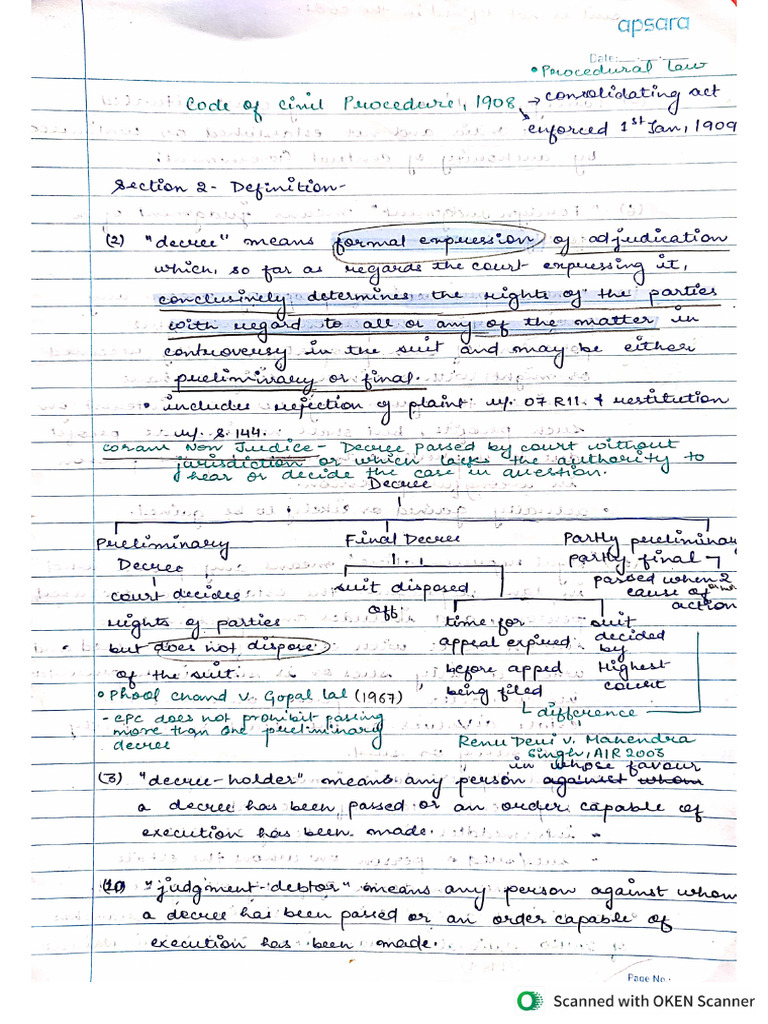 apsara
Date:
• Procedural Law
Code of Civil Procedure, 1908 → consolidating act
→ enforced 1st Jan, 1909
Section 2 - Definition-
(2) "decree" means formal expression of adjudication
which, so far as regards the court expressing it,
conclusively determines the rights of the parties
with regard to all or any of the matter in
controversy in the suit and may be either
preliminary or final.
• includes rejection of plaint u/. O7 R11. & restitution
u/. S. 144.
Coram Non Judice - Decree passed by court without
jurisdiction or which lacks the authority to
hear or decide the case in question.
Decree
Preliminary Decree
court decides
rights of parties
but does not dispose
of the suit.
• Phool Chand v. Gopal Lal (1967)
- CPC does not prohibit passing
more than one preliminary
decree
Final Decree
suit disposed
off.
time for
appeal expired
before apped
being filed
suit
decided
by
Highest
court
difference
Renu Devi v. Mahendra
Singh, AIR 2003
Partly preliminary
partly final
passed when 2
cause of
action
in whose favour
(3) "decree-holder" means any person against whom
a decree has been passed or an order capable of
execution has been made.
(10) "judgment-debtor" means any person against whom
a decree has been passed or an order capable of
execution has been made.
Page No.:
Scanned with OKEN Scanner